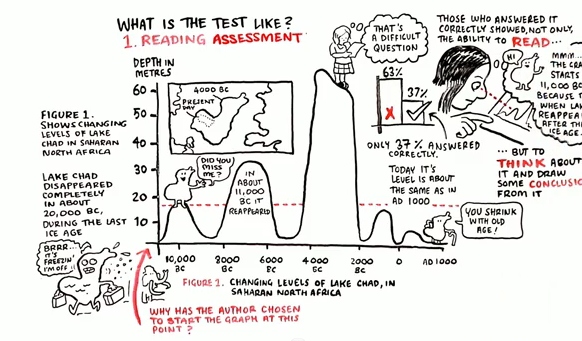 WHAT IS THE TEST LIKE?
1. READING ASSESSMENT
DEPTH IN
METRES
60
50
40
30
20
10
10,000
BC
8000
BC
6000
BC
4000
BC
2000
BC
0
AD 1000
4000 BC
PRESENT
DAY
DID YOU
MISS
ME?
IN
ABOUT
11,000
BC IT
REAPPEARED
FIGURE 1.
SHOWS CHANGING
LEVELS OF LAKE
CHAD IN SAHARAN
NORTH AFRICA
LAKE CHAD
DISAPPEARED
COMPLETELY
IN ABOUT
20,000 BC,
DURING THE LAST
ICE AGE
BRRR...
IT'S
FREEZIN'
I'M OFF!!
FIGURE 1. CHANGING LEVELS OF LAKE CHAD, IN
SAHARAN NORTH AFRICA
WHY HAS THE AUTHOR CHOSEN
TO START THE GRAPH AT THIS
POINT?
THAT'S
A DIFFICULT
QUESTION
63%
37%
ONLY 37% ANSWERED
CORRECTLY.
TODAY IT'S
LEVEL IS ABOUT
THE SAME AS IN
AD 1000
YOU SHRINK
WITH OLD
AGE!
THOSE WHO ANSWERED IT
CORRECTLY SHOWED, NOT ONLY,
THE ABILITY TO READ...
HI
MMM...
THE GRA
STARTS
11,000 BC
BECAUSE T
WHEN LA
REAPPEAR
AFTER THE
ICE AGE.
... BUT TO
THINK ABOUT
IT AND DRAW
SOME CONCLUSIO
FROM IT